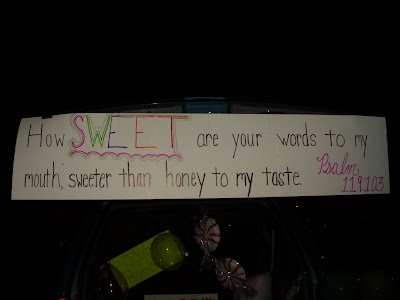 How SWEET are your words to my
mouth, sweeter than honey to my taste.
Psalm
119:103